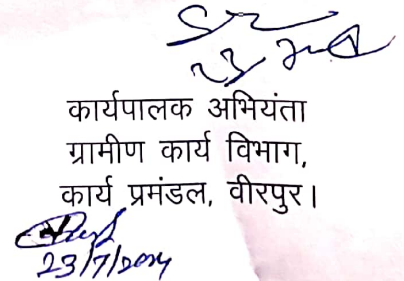 कार्यपालक अभियंता
ग्रामीण कार्य विभाग,
कार्य प्रमंडल, वीरपुर।
23/7/2024